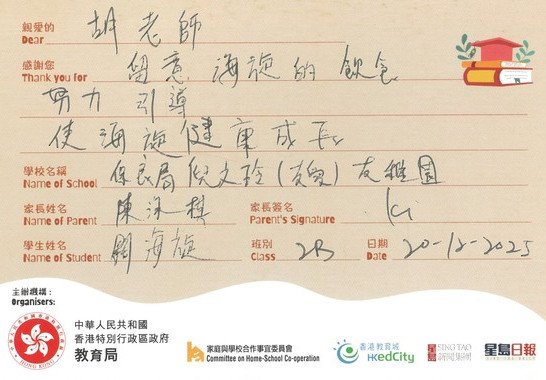 親愛的 胡老師
Dear
感謝您 留意海旋的飲食
Thank you for
努力 引導
使海旋健康成長
學校名稱 保良局倪文玲(
Name of School
家長姓名 陳 家長簽名
Name of Parent Parent's Signature
學生姓名 劉海旋 班別 2B 日期 20-12-2025
Name of Student Class Date
主辦機構：
Organisers:
中華人民共和國
香港特別行政區政府
教育局
HONG KONG
家庭與學校合作事宜委員會
Committee on Home-School Co-operation
香港教育城
HKedCity
星島 SING TAO
新聞集團
星島日報